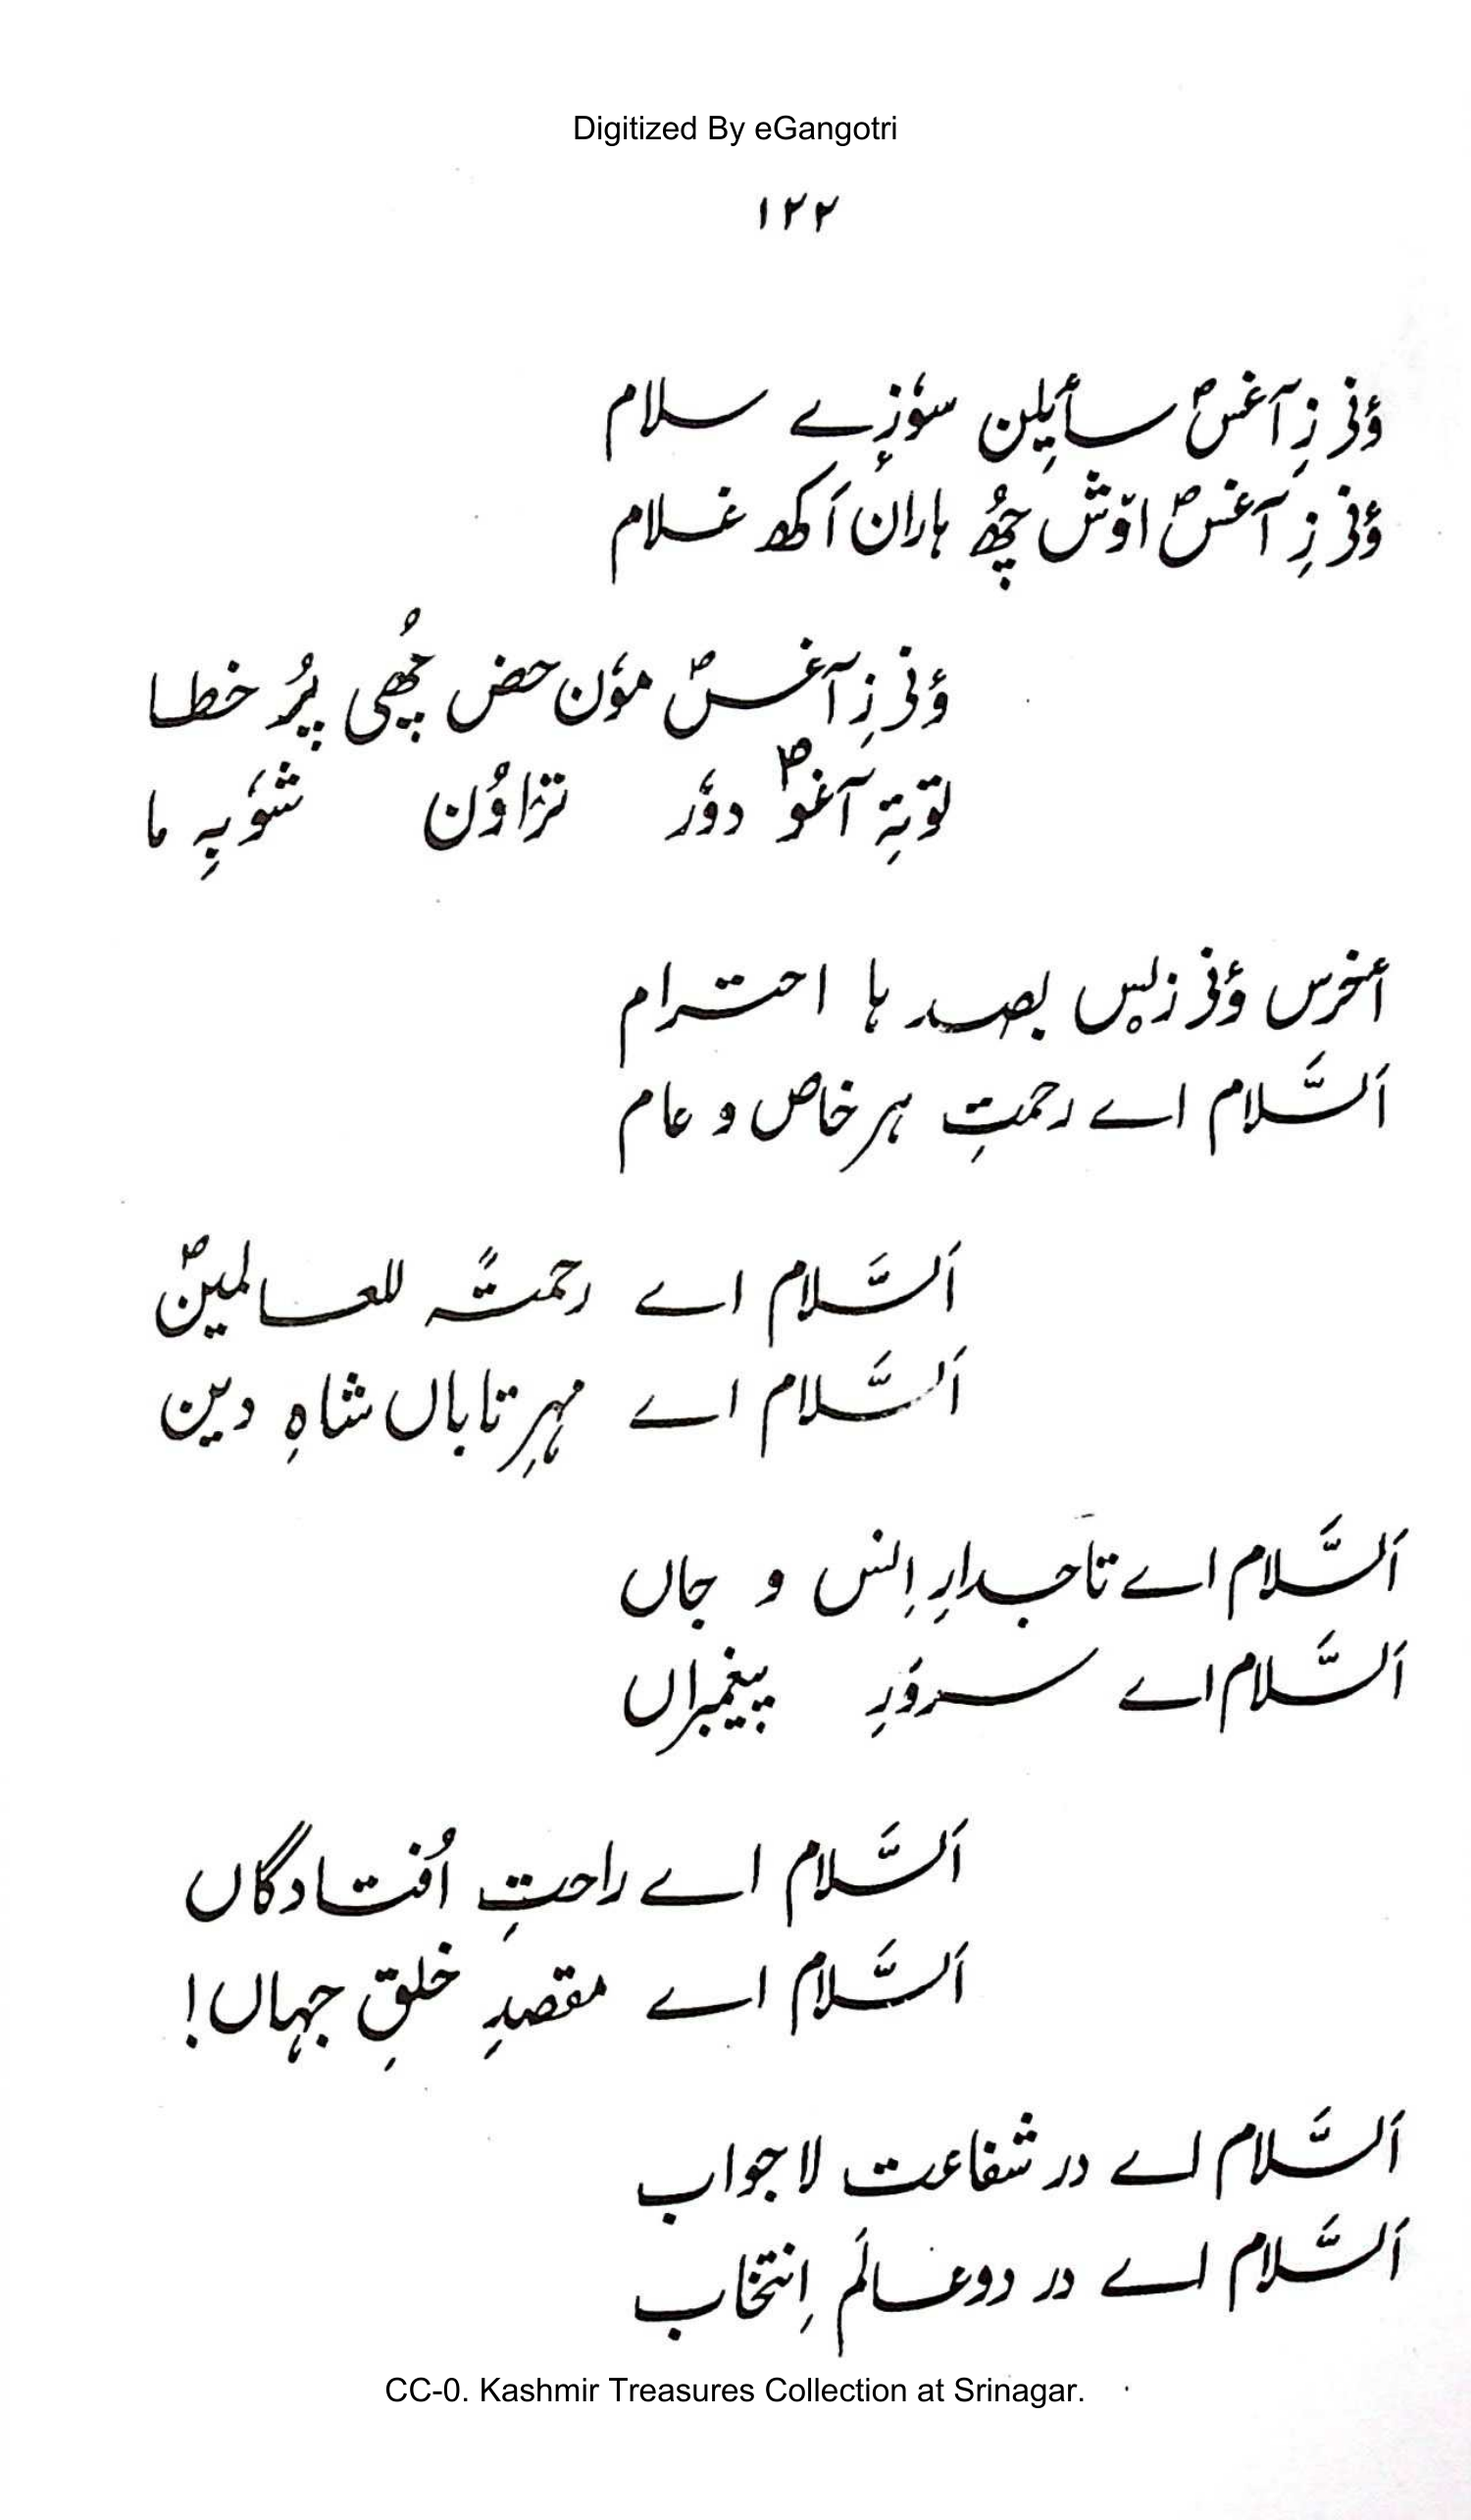 Digitized By eGangotri
۱۲۲
ؤنی زِ آغسؐ سأیِلن سوٗزٕے سلام
ؤنی زِ آغسؐ اوٚش چھُ ہاران اَکھ غلام
ؤنی زِ آغسؐ موٗن حض چھُی پُر خطا
توٚتہِ آغوؐ دوٗر ترٛاوُن شوٗبہِ ما
أخرس ؤنی زیس بصد ہا احترام
اَلسَّلام اے رحمتِ ہر خاص و عام
اَلسَّلام اے رحمتہً للعالمینؐ
اَلسَّلام اے مہرِ تاباں شاہِ دین
اَلسَّلام اے تاجدارِ اِنس و جاں
اَلسَّلام اے سرورِ پیغمبراں
اَلسَّلام اے راحتِ اُفتادگاں
اَلسَّلام اے مقصدِ خلقِ جہاں!
اَلسَّلام اے در شفاعت لاجواب
اَلسَّلام اے در دو عالَم اِنتخاب
CC-0. Kashmir Treasures Collection at Srinagar.